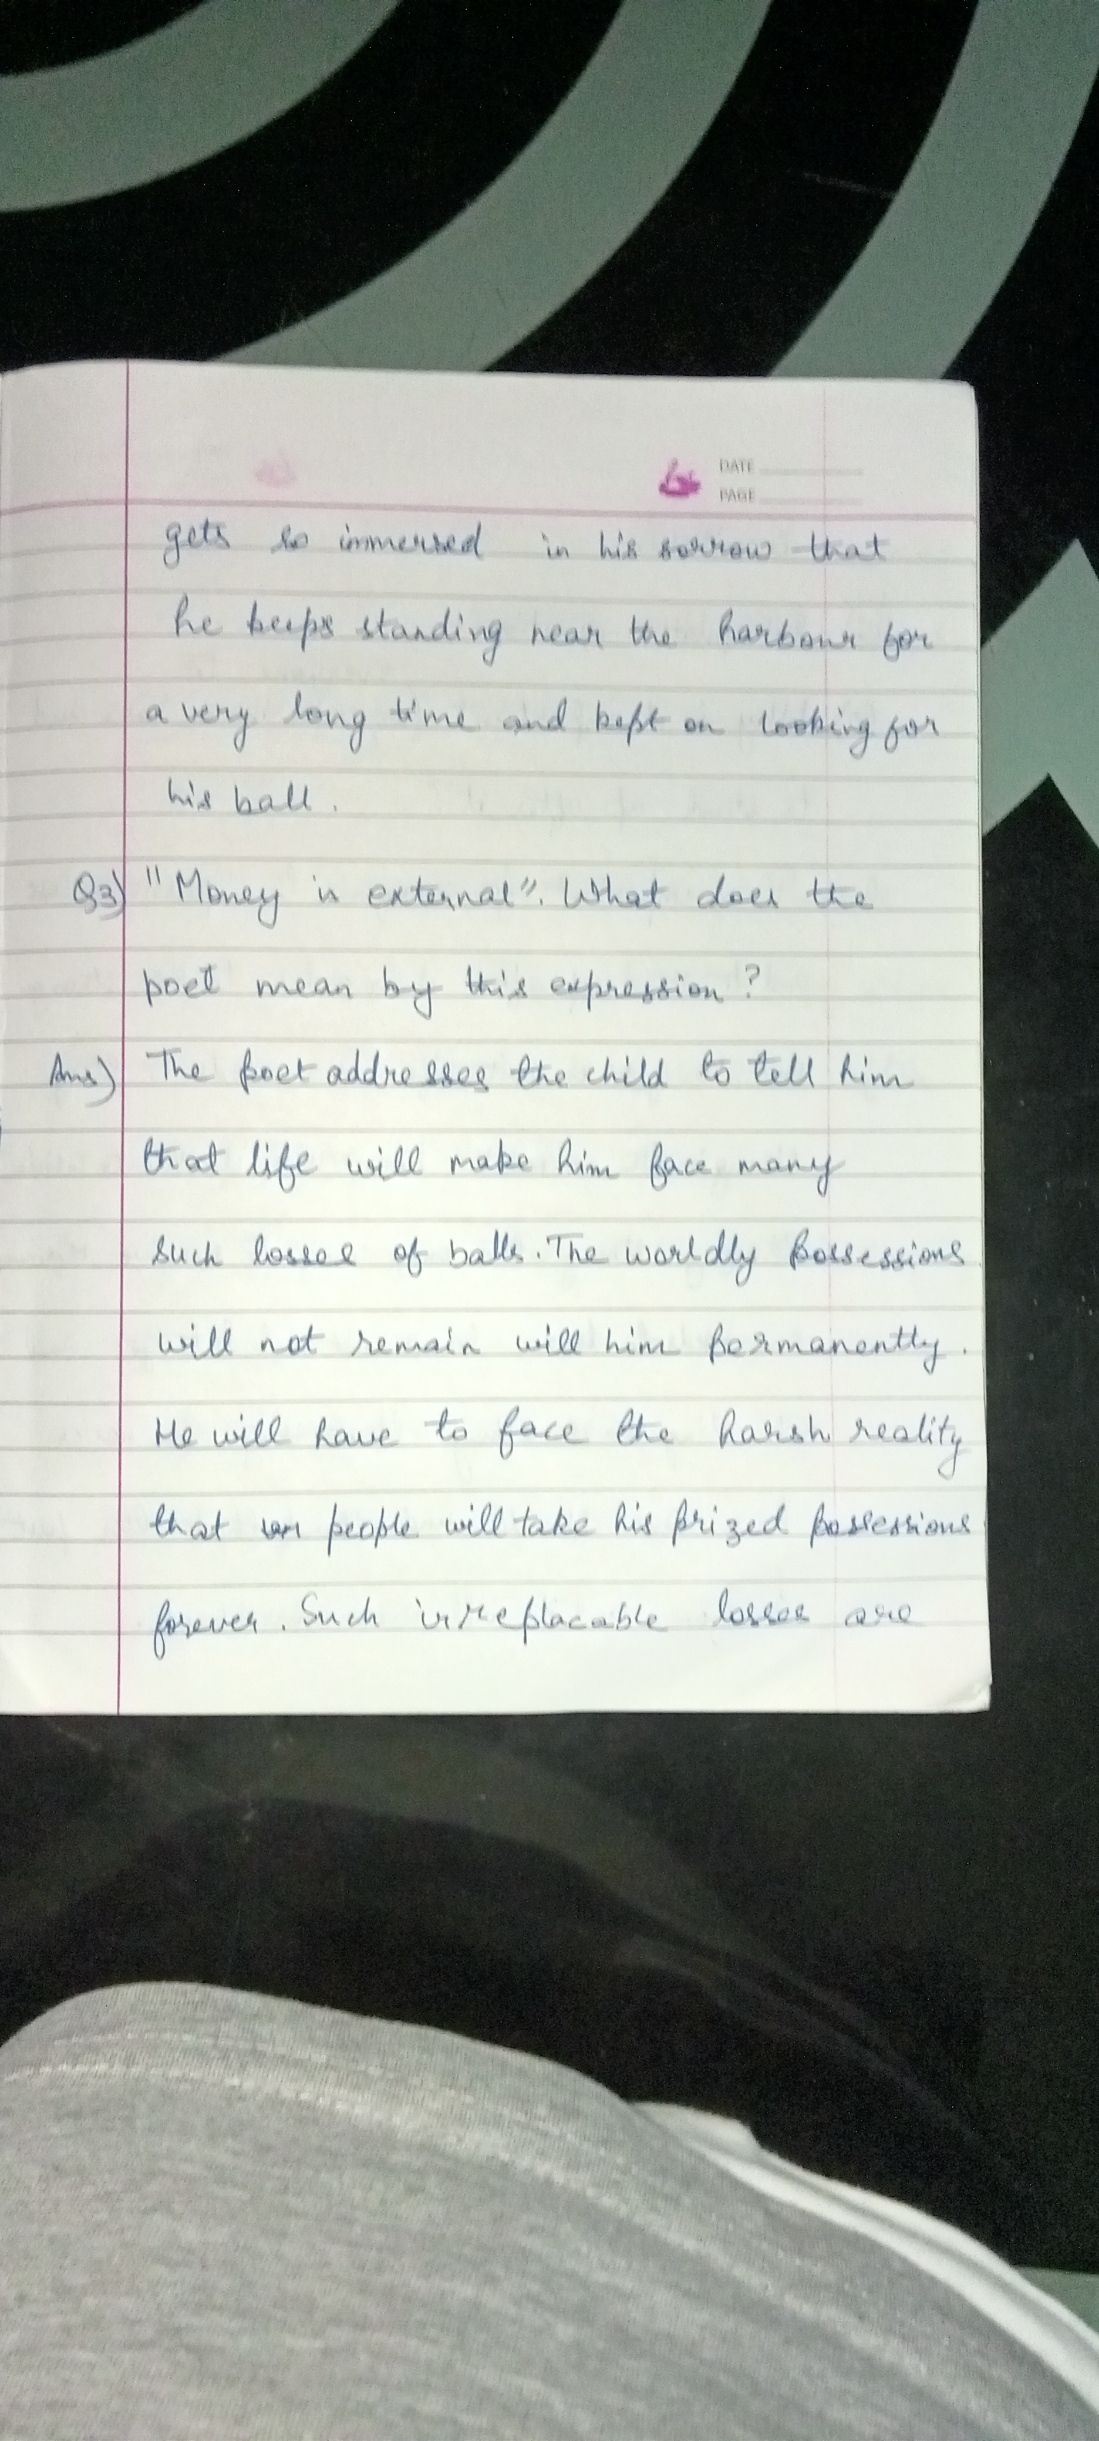 DATE
PAGE
gets so immersed in his sorrow that
he keeps standing near the harbour for
a very long time and kept on looking for
his ball.
Q3) "Money is external". What does the
poet mean by this expression?
Ans) The poet addresses the child to tell him
that life will make him face many
such losses of balls. The worldly possessions
will not remain will him permanently.
He will have to face the harsh reality
that people will take his prized possessions
forever. Such irreplacable losses are